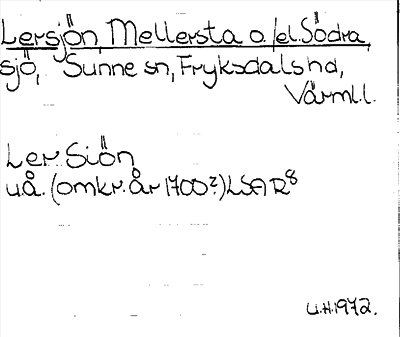 Lersjön, Mellersta o./el. Södra,
sjö, Sunne sn, Fryksdals hd,
Värml.l.
Ler Siön
u.å. (omkr. år 1700?) LSA R8
U.H. 1972.